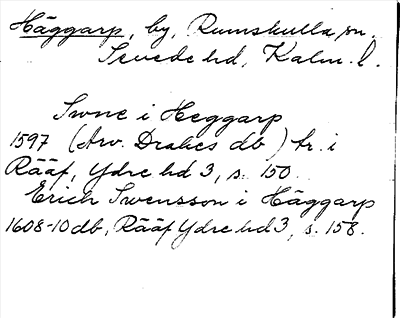 Häggarp, by, Rumskulla sn.
Sevede hd, Kalm. l.
Swne i Heggarp
1597 (Arv. Drakes db) tr. i
Rääf, Ydre hd 3, s. 150.
Erich Swensson i Häggarp
1608-10 db, Rääf Ydre hd 3, s. 158.